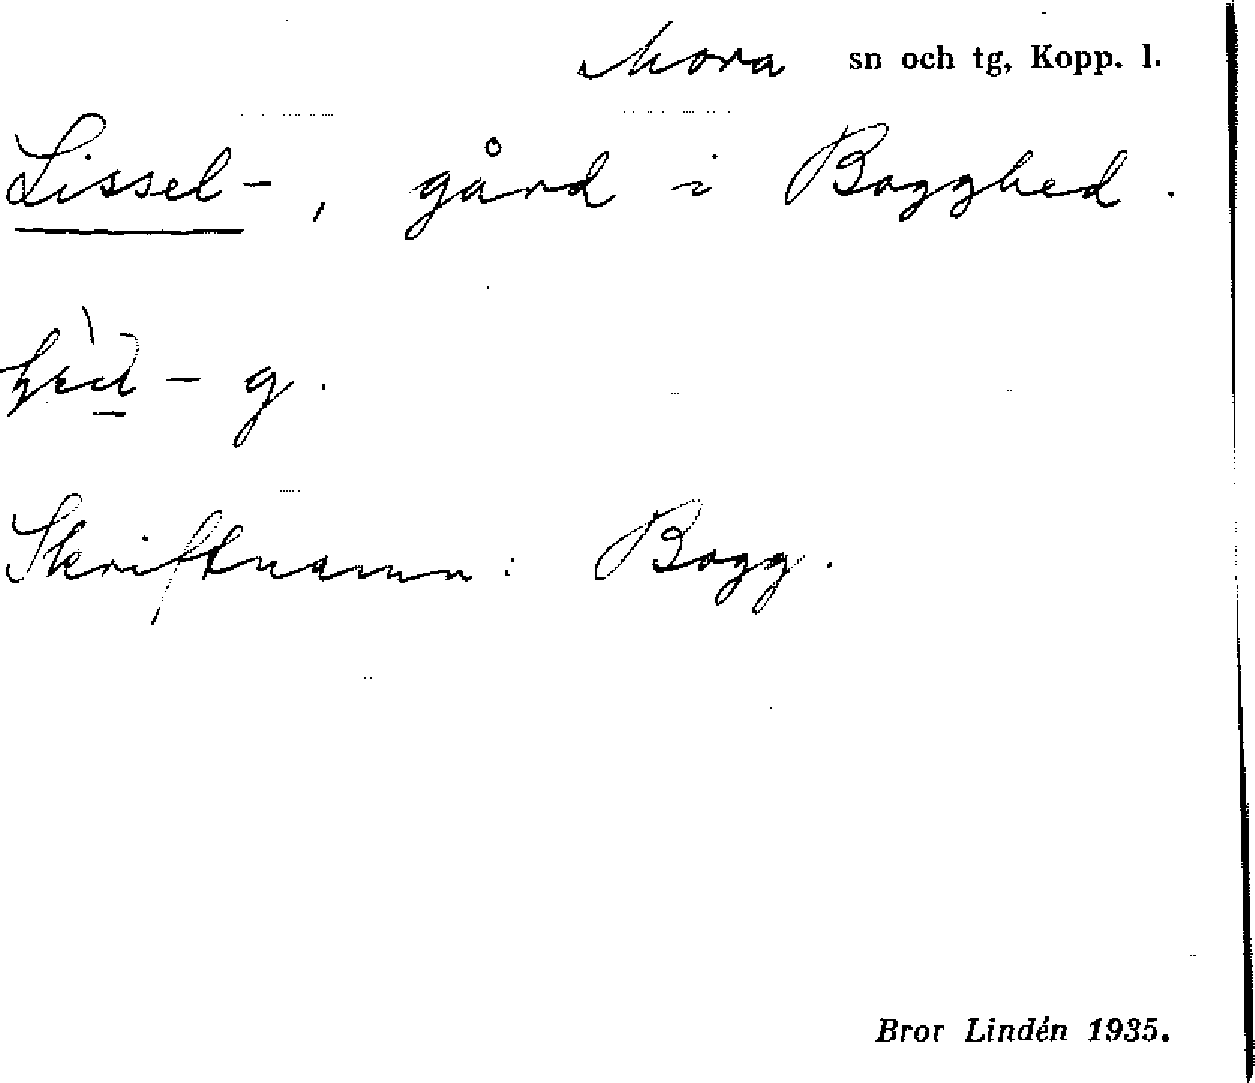 Mora sn och tg, Kopp. l.
Lissel-, gård i Bogghed.
- g.
Skriftnamn: Bogg.
Bror Lindén 1935.